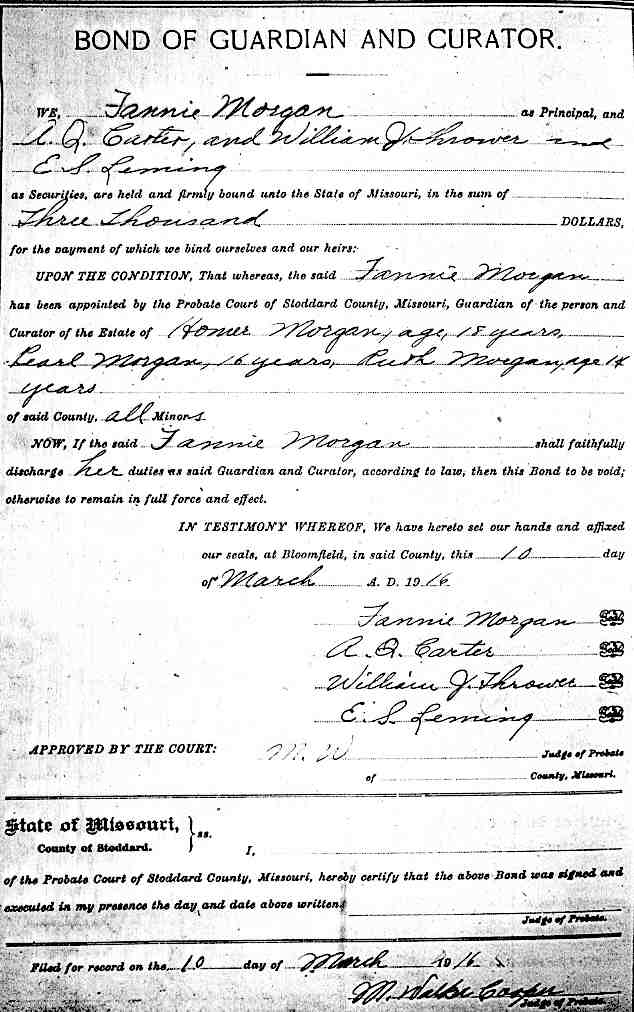 BOND OF GUARDIAN AND CURATOR.
WE, Fannie Morgan as Principal, and
A. Q. Carter, and William J. Thrower and
E. S. Leming
as Securities, are held and firmly bound unto the State of Missouri, in the sum of
Three Thousand DOLLARS,
for the payment of which we bind ourselves and our heirs:
UPON THE CONDITION, That whereas, the said Fannie Morgan
has been appointed by the Probate Court of Stoddard County, Missouri, Guardian of the person and
Curator of the Estate of Homer Morgan, age, 18 years,
Pearl Morgan, 16 years, Ruth Morgan, age 14
years
of said County, all Minors.
NOW, If the said Fannie Morgan shall faithfully
discharge her duties as said Guardian and Curator, according to law, then this Bond to be void;
otherwise to remain in full force and effect.
IN TESTIMONY WHEREOF, We have hereto set our hands and affixed
our seals, at Bloomfield, in said County, this 10 day
of March A. D. 1916
Fannie Morgan Seal
A. Q. Carter Seal
William J. Thrower Seal
E. S. Leming Seal
APPROVED BY THE COURT: M. W Judge of Probate
of County, Missouri.
State of Missouri, } ss.
County of Stoddard.
I,
of the Probate Court of Stoddard County, Missouri, hereby certify that the above Bond was signed and
executed in my presence the day and date above written.
Judge of Probate.
Filed for record on the 10 day of March 1916
M. Walker Cooper
Judge of Probate.